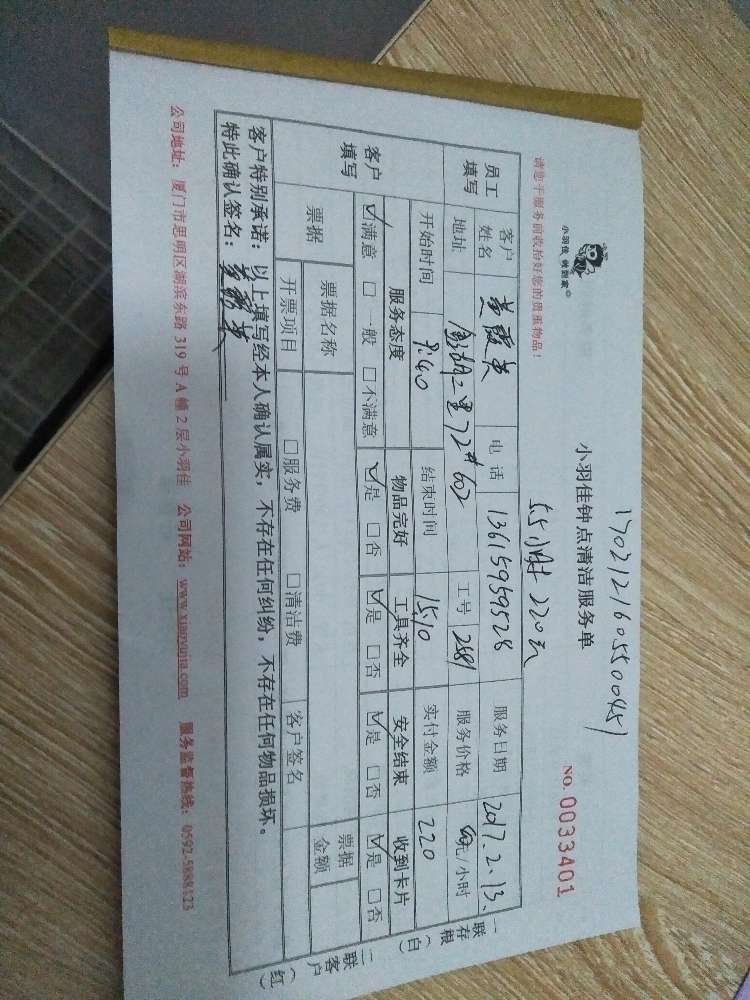 1702121605500451
小羽佳 做到家
小羽佳钟点清洁服务单
NO. 0033401
请您于服务前收拾好您的贵重物品！
5.5小时 220元
员工填写 客户姓名 黄霞英 电话 13615959528 服务日期 2017.2.13.
地址 金湖二里72#602 工号 2581 服务价格 40元/小时
开始时间 9:40 结束时间 15:10 实付金额 220
客户填写 服务态度 物品完好 工具齐全 安全结束 收到卡片
☑满意 □一般 □不满意 ☑是 □否 ☑是 □否 ☑是 □否 ☑是 □否
票据 票据名称 票据金额
开票项目 □服务费 □清洁费 客户签名
客户特别承诺：以上填写经本人确认属实，不存在任何纠纷，不存在任何物品损坏。
特此确认签名：黄霞英
一联存根（白） 二联客户（红）
公司地址：厦门市思明区湖滨东路 319 号 A 幢 2 层小羽佳 公司网站：www.xiaoyujia.com 服务监督热线：0592-5888123